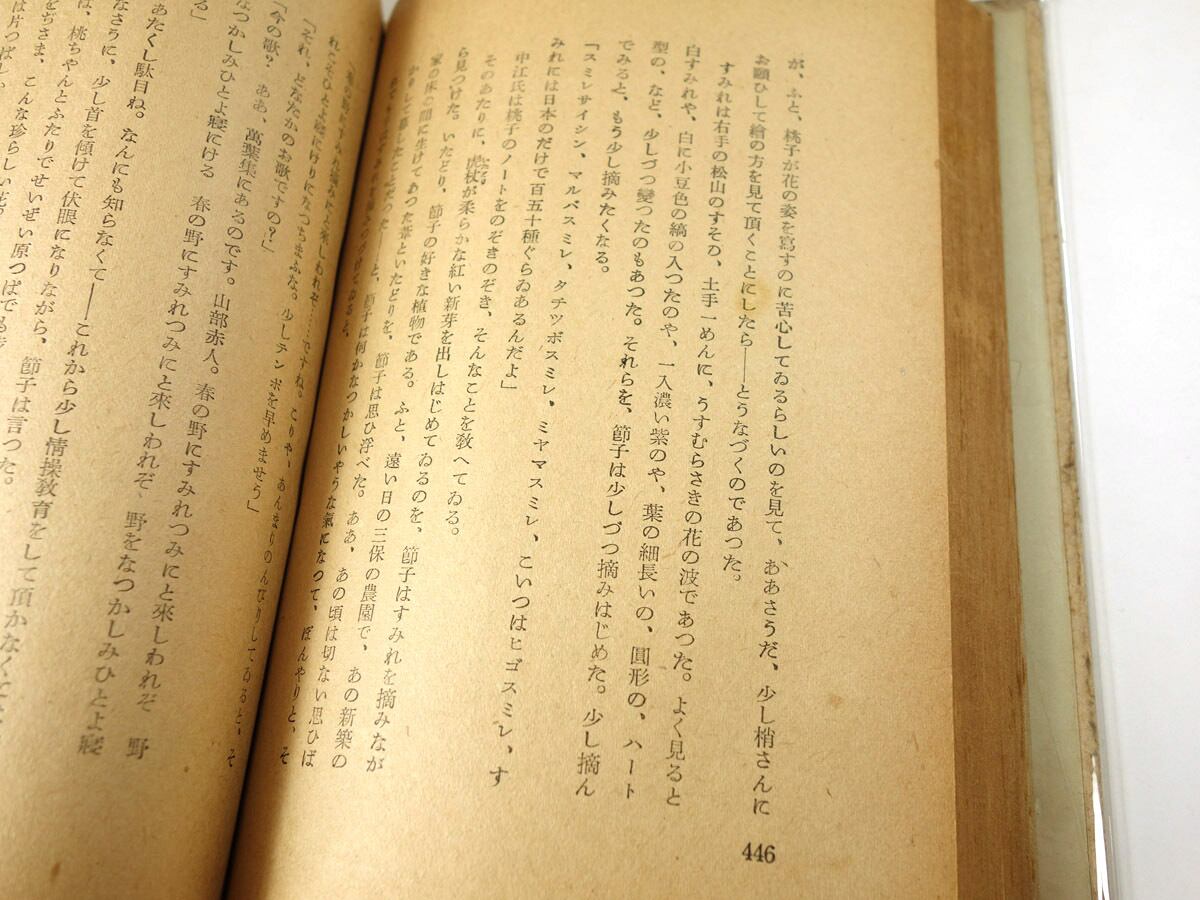 が、ふと、桃子が花の姿を寫すのに苦心してゐるらしいのを見て、ああさうだ、少し梢さんに
お願ひして繪の方を見て頂くことにしたら――とうなづくのであつた。
すみれは右手の松山のすその、土手一めんに、うすむらさきの花の波であつた。よく見ると
白すみれや、白に小豆色の縞の入つたのや、一入濃い紫のや、葉の細長いの、圓形の、ハート
型の、など、少しづつ變つたのもあつた。それらを、節子は少しづつ摘みはじめた。少し摘ん
でみると、もう少し摘みたくなる。
「スミレサイシン、マルバスミレ、タチツボスミレ、ミヤマスミレ、こいつはヒゴスミレ、す
みれには日本のだけで百五十種ぐらゐあるんだよ」
中江氏は桃子のノートをのぞきのぞき、そんなことを敎へてゐる。
そのあたりに、虎杖が柔らかな紅い新芽を出しはじめてゐるのを、節子はすみれを摘みなが
ら見つけた。いたどり、節子の好きな植物である。ふと、遠い日の三保の農園で、あの新築の
家の床の間に生けてあつた葦といたどりを、節子は思ひ浮べた。ああ、あの頃は切ない思ひば
かりして暮したことだつた――と、節子は何かなつかしいやうな氣になつて、ぼんやりと、そ
れにそひよよ寢にけりになつちまふな。少しテンポを早めませう」
「それ、どなたかのお歌ですの?」
「今の歌? ああ、萬葉集にあるのです。山部赤人。春の野にすみれつみにと來しわれぞ 野
をなつかしみひとよ寢にける 春の野にすみれつみにと來しわれぞ、野をなつかしみひとよ寢
る」
あたくし駄目ね。なんにも知らなくて――これから少し情操敎育をして頂かなくて
なさうに、少し首を傾けて伏眼になりながら、節子は言つた。
は、桃ちゃんとふたりでせいぜい原つぱでも
をぢさま、こんな珍らしい花?
446